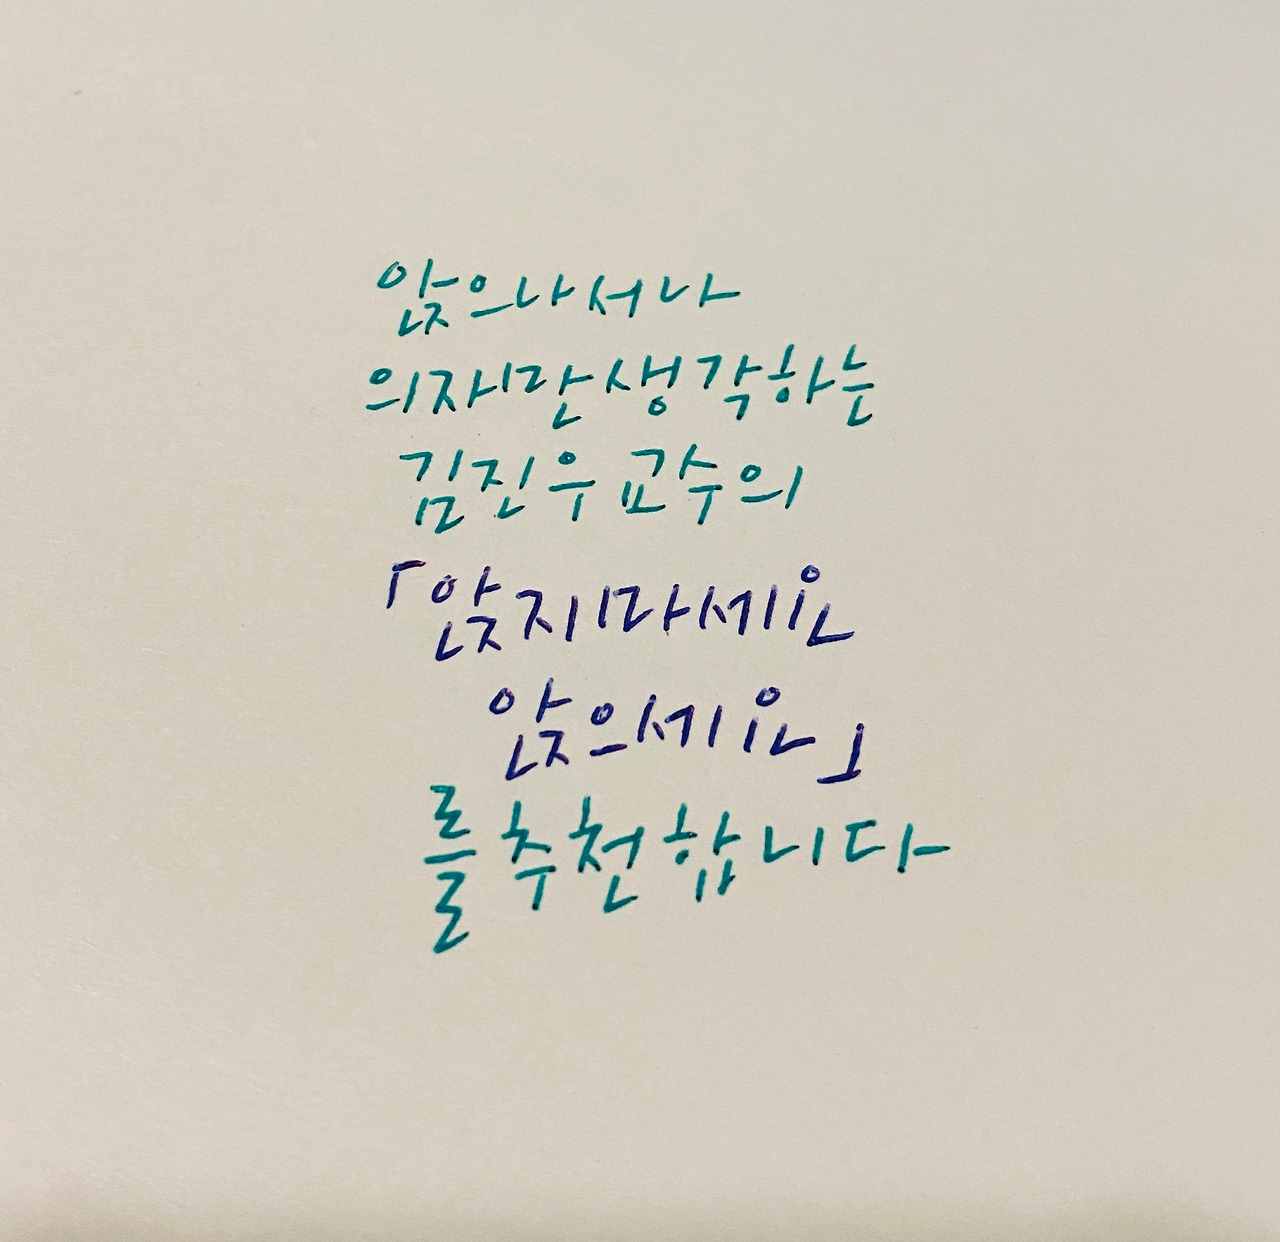 앉으나서나
의자만생각하는
김진우교수의
「앉지마세요
앉으세요」
를추천합니다